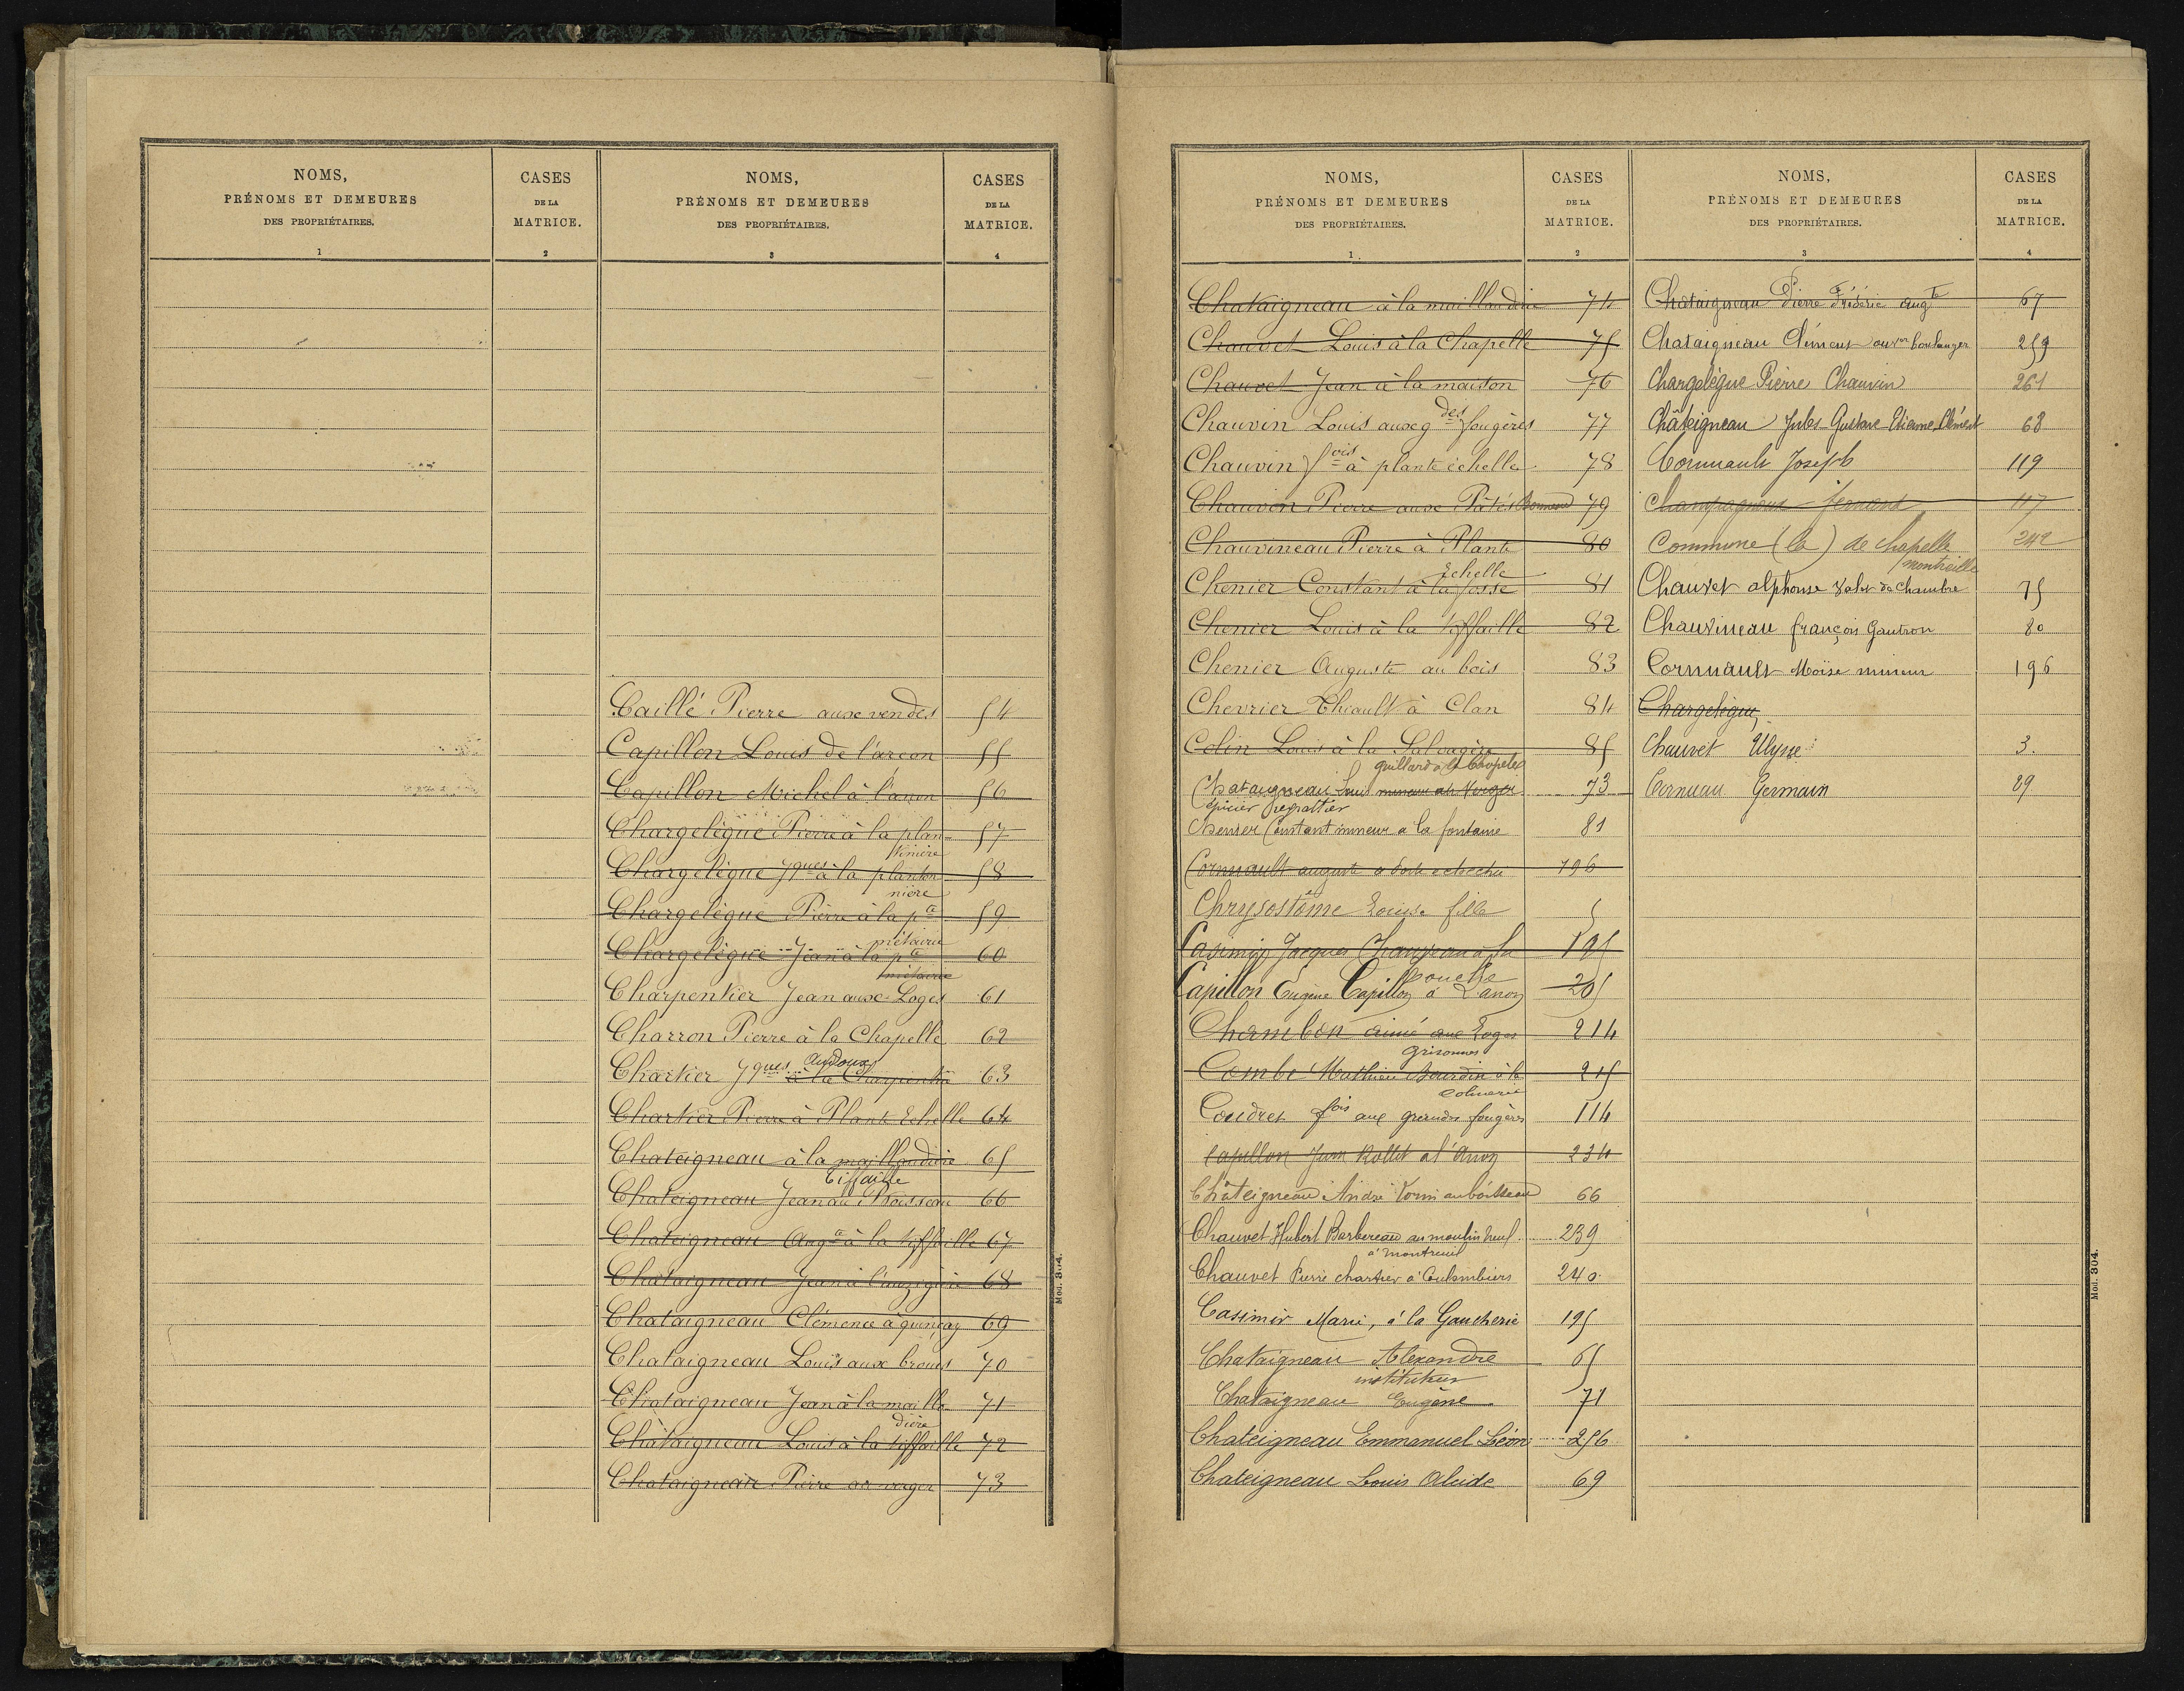 NOMS,
PRÉNOMS ET DEMEURES
DES PROPRIÉTAIRES.
1
CASES
DE LA
MATRICE.
2
NOMS,
PRÉNOMS ET DEMEURES
DES PROPRIÉTAIRES.
3
CASES
DE LA
MATRICE.
4
Caillé Pierre aux vendes 54
Capillon Louis de l'arçon 55
Capillon Michel à l'anon 56
Chargelègue Pierre à la plan- 57
tinière
Chargelègue Jques à la planton 58
nière
Chargelègue Pierre à la pte 59
métairie
Chargelègue Jean à la pte 60
métairie
Charpentier Jean aux Loges 61
Charron Pierre à la Chapelle 62
Chartier Jques Audoux à la Charpentrie 63
Chartier Pierre à Plante Echelle 64
Chateigneau à la maillaudière 65
tiffaille
Chateigneau Jean au Boisseau 66
Chateigneau Augte à la tiffaille 67
Chataigneau Jean à 68
Chataigneau Clémence à quinçay 69
Chataigneau Louis aux broues 70
Chataigneau Jean à la mailla 71
dière
Chataigneau Louis à la tiffaille 72
Chataigneau Pierre au verger 73
Mod. 304.
NOMS,
PRÉNOMS ET DEMEURES
DES PROPRIÉTAIRES.
1.
CASES
DE LA
MATRICE.
2
Chataigneau à la maillaudrie 74
Chauvet Louis à la Chapelle 75
Chauvet Jean à la maison 76
Chauvin Louis aux gdes fougères 77
Chauvin fois à plante échelle 78
Chauvin Pierre aux Pâtés Bonneau 79
Chauvineau Pierre à Plante 80
Echelle
Chenier Constant à la fosse 81
Chenier Louis à la tiffaille 82
Chenier Auguste au bois 83
Chevrier Thiault à Clan 84
Colin Louis à la Salvagère 85
Chataigneau Louis mineur au Verger 73
épicier
Chenier Constant mineur a la fontaine 81
Cornuault auguste 196
Chrysostôme Louise fille 5
Casimir Jacques Chauveau à la 195
Foucthe
Capillon Eugène Capillon à L'anon 205
Chambon aimé aux Loges 214
grisonnes
Combe Mathieu Bourdin à la 215
colinerie
Coudret fois aux grandes fougères 114
Capillon Jean Rollet à l'Anon 234
Châteigneau André Torin au boisseau 66
Chauvet Hubert Barbereau au moulin neuf 239
à Montreuil
Chauvet Pierre chartier à Coulombiers 240
Casimir Marie, à la Gaucherie 195
Chataigneau Alexandre 65
instituteur
Chataigneau Eugène 71
Chateigneau Emmanuel Léon 256
Chateigneau Louis Alcide 69
NOMS,
PRÉNOMS ET DEMEURES
DES PROPRIÉTAIRES.
3
CASES
DE LA
MATRICE.
4
Châtaigneau Pierre Frédéric Augte 67
Chataigneau Clément ouvier boulanger 259
Chargelègue Pierre Chauvin 261
Châteigneau Jules Gustave Etienne Clément 68
Cornuault Joseph 119
Champagneau fernand 117
Commune (la) de Chapelle 242
montreuil
Chauvet alphonse Valet de Chambre 75
Chauvineau françois Gautron 80
Cornuault Moïse mineur 196
Chargelègue
Chauvet Ulysse 3.
Cornuau Germain 89
Mod. 304.